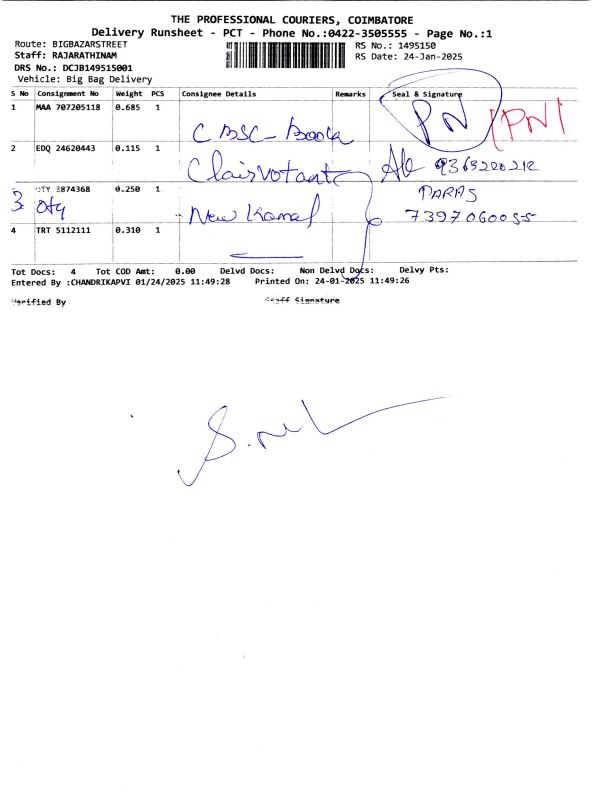 THE PROFESSIONAL COURIERS, COIMBATORE
Delivery Runsheet - PCT - Phone No.:0422-3505555 - Page No.:1
Route: BIGBAZARSTREET RS No.: 1495150
Staff: RAJARATHINAM RS Date: 24-Jan-2025
DRS No.: DCJB149515001
Vehicle: Big Bag Delivery
S No Consignment No Weight PCS Consignee Details Remarks Seal & Signature
1 MAA 707205118 0.685 1 CBSC-Book PN (PN)
2 EDQ 24620443 0.115 1 9363220212
3874368 0.250 1 New Kamal PARAS
3 Oty 7397060055
4 TRT 5112111 0.310 1
Tot Docs: 4 Tot COD Amt: 0.00 Delvd Docs: Non Delvd Docs: Delvy Pts:
Entered By :CHANDRIKAPVI 01/24/2025 11:49:28 Printed On: 24-01-2025 11:49:26
Verified By Staff Signature